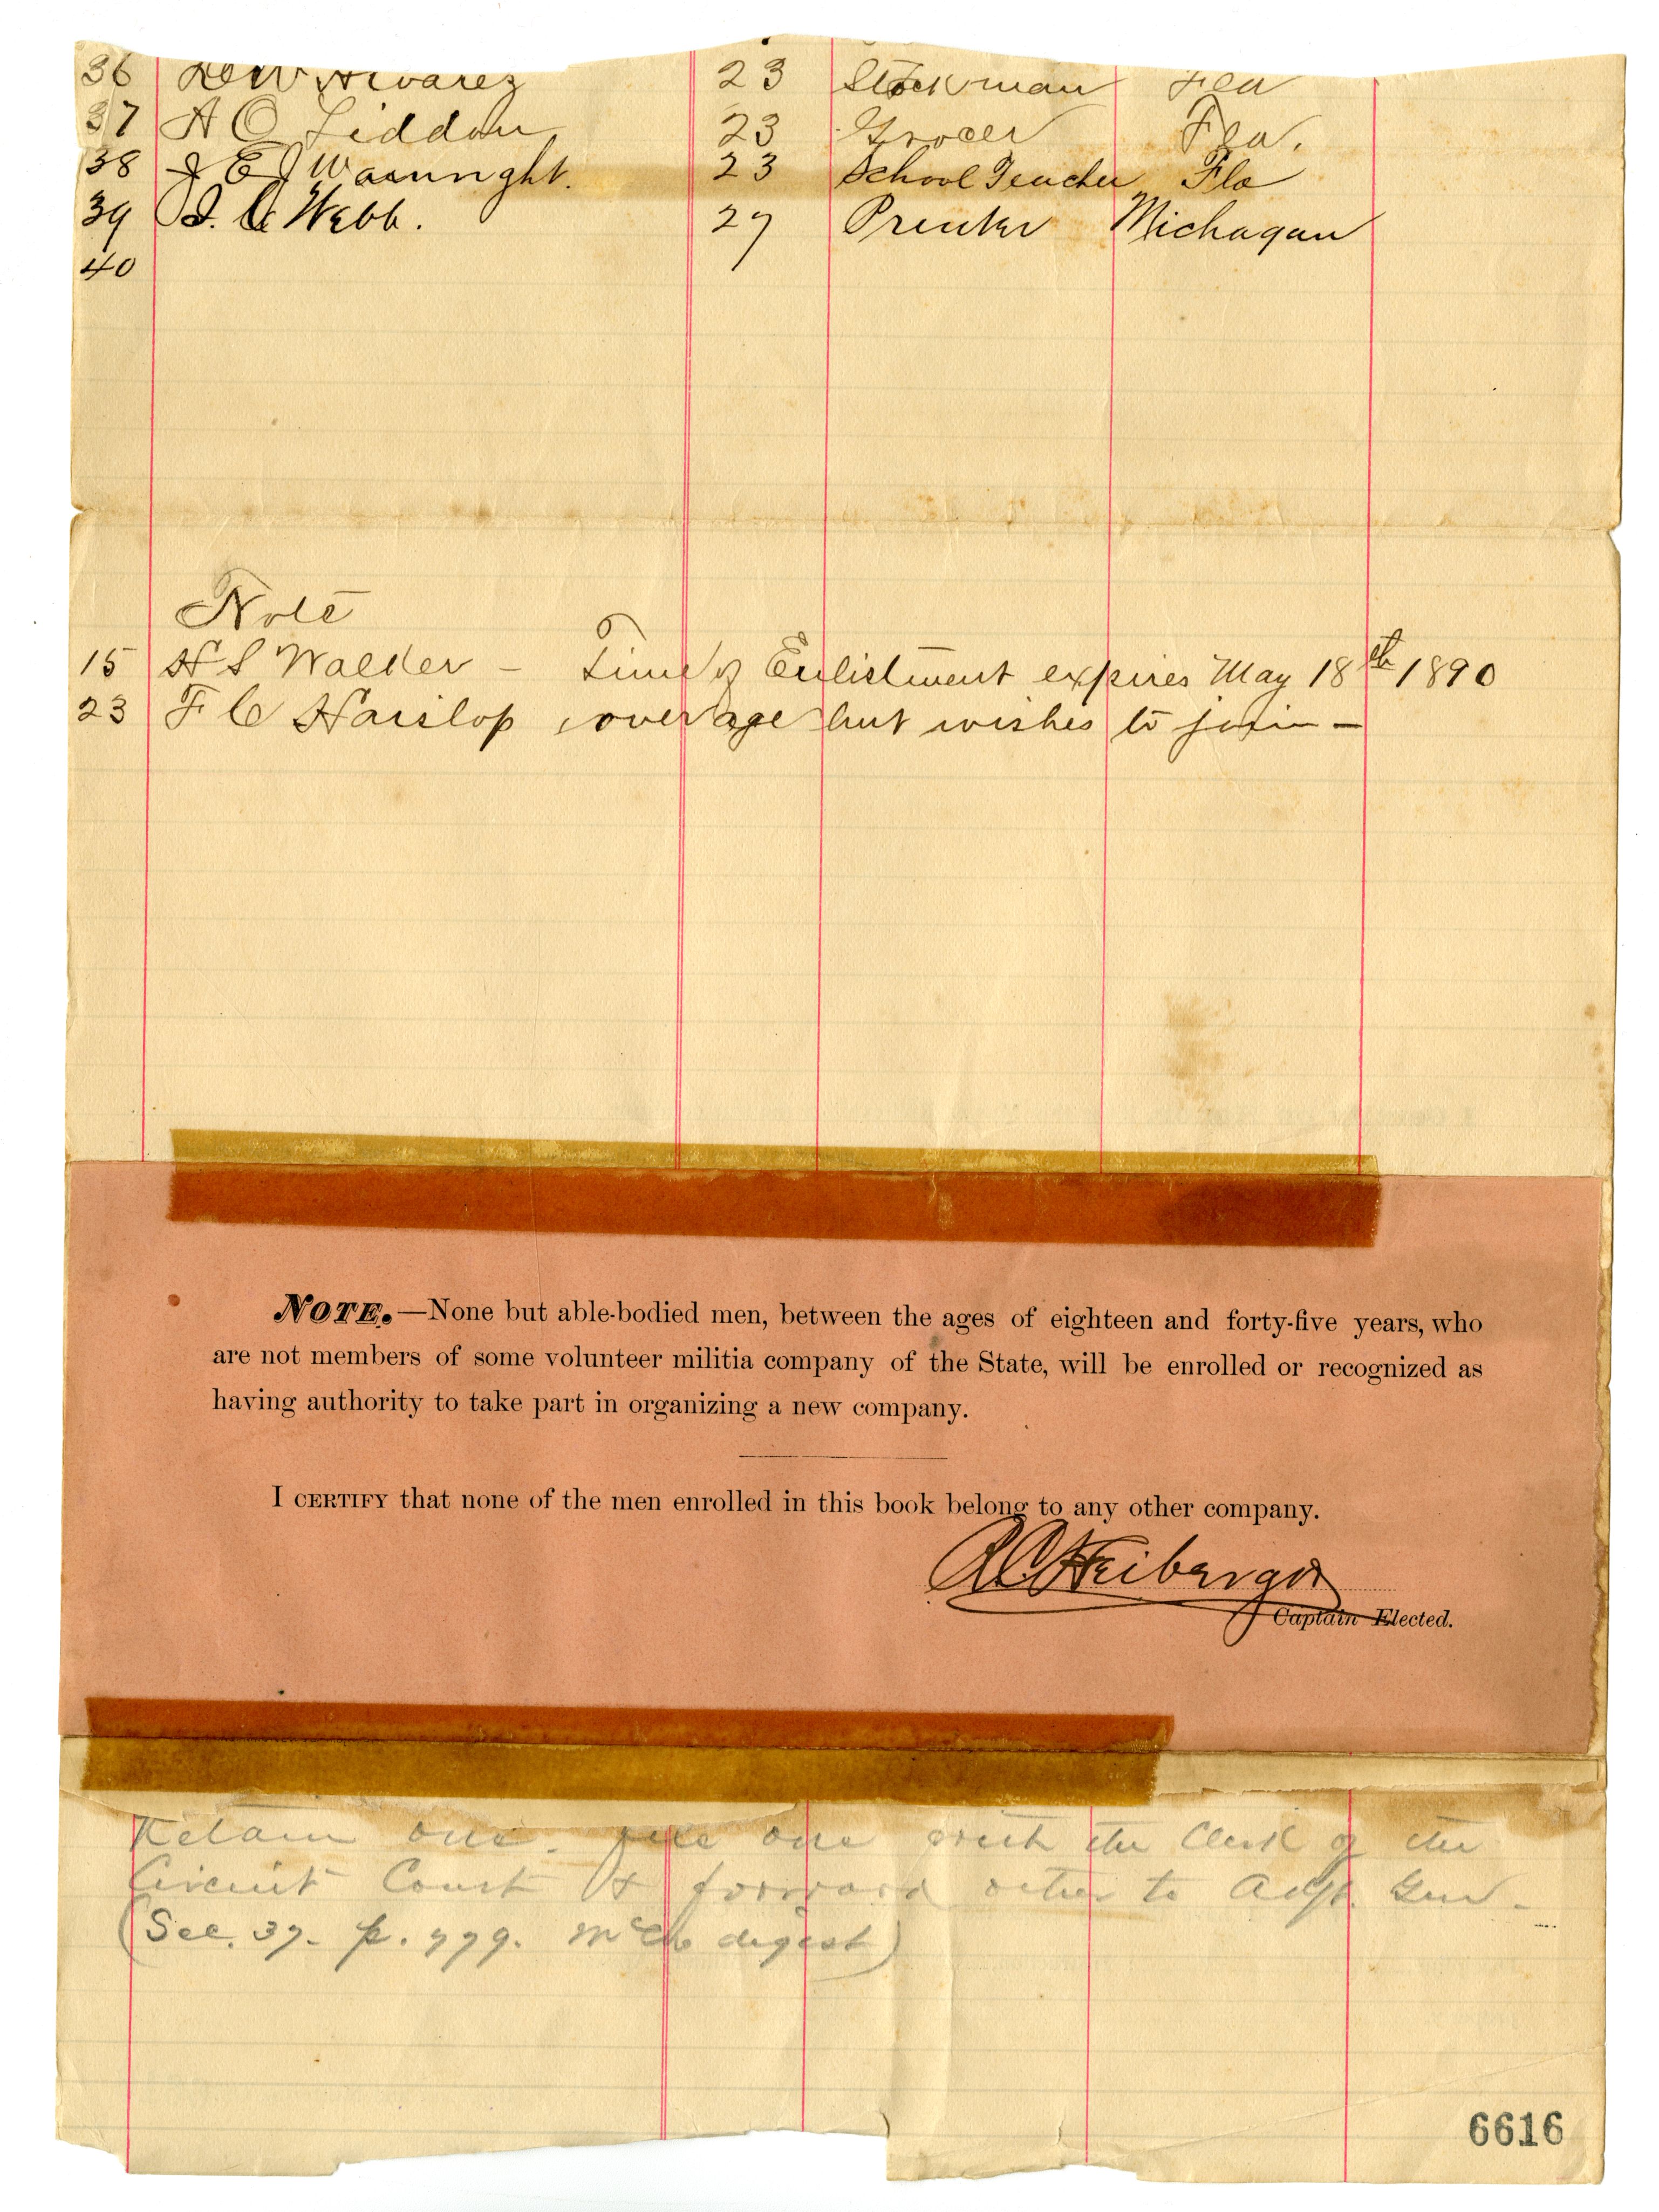 36 Alvarez 23 Stockman Fla
37 A O Liddon 23 Grocer Fla.
38 J E J Wainright. 23 School Teacher Fla
39 J. C Webb. 27 Printer Michagan
40
Note
15 H S Walker - Time of Enlistment expires May 18th 1890
23 F C Haislop over age but wishes to join -
NOTE.—None but able-bodied men, between the ages of eighteen and forty-five years, who
are not members of some volunteer militia company of the State, will be enrolled or recognized as
having authority to take part in organizing a new company.
I CERTIFY that none of the men enrolled in this book belong to any other company.
Captain Elected.
Retain one. file one with the Clerk of the
Circuit Court & forward other to Adjt. Genl.
(Sec. 37. p. 779. McC digest)
6616